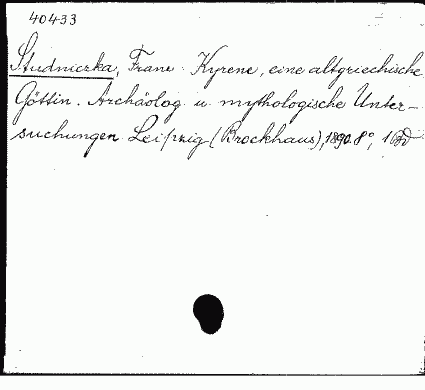 40433
Studniczka, Franz. Kyrene, eine altgriechische
Göttin. Archäolog. u. mythologische Unter-
suchungen. Leipzig (Brockhaus), 1890. 8°, 1 Bd